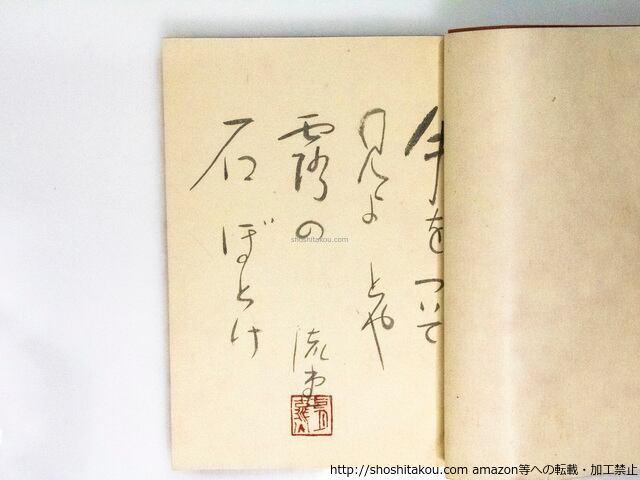 手をついて
見よとや
露の
石ぼとけ
shoshitakou.com
http://shoshitakou.com amazon等への転載・加工禁止